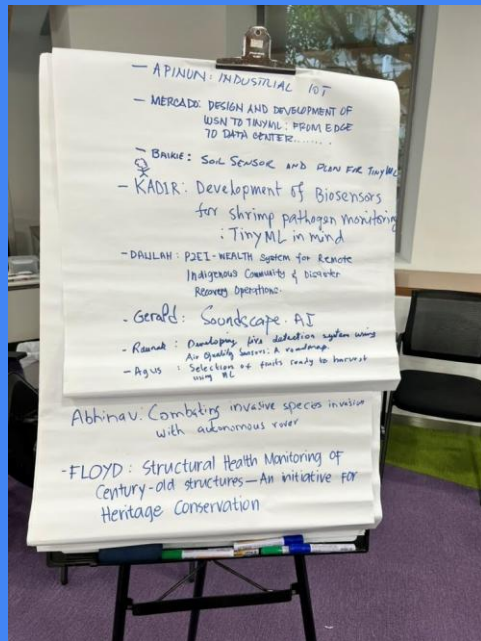 - APINUN: INDUSTRIAL IOT
- MERCADO: DESIGN AND DEVELOPMENT OF
WSN TO TINYML: FROM EDGE
TO DATA CENTER.......
- BAIKIE: SOIL SENSOR AND PLAN FOR TINYML
- KADIR: Development of Biosensors
for shrimp pathogen monitoring
: TinyML in mind
- DAULAH: P2EI-WEALTH System for Remote
Indigenous Community & Disaster
Recovery Operations.
- Gerald: Soundscape. AI
- Raunak: Developing fire detection system using
Air Quality Sensors: A roadmap.
- Agus : Selection of fruits ready to harvest
using ML
Abhinav: Combating invasive species invasion
with autonomous rover
- FLOYD: Structural Health Monitoring of
Century-old structures — An initiative for
Heritage Conservation